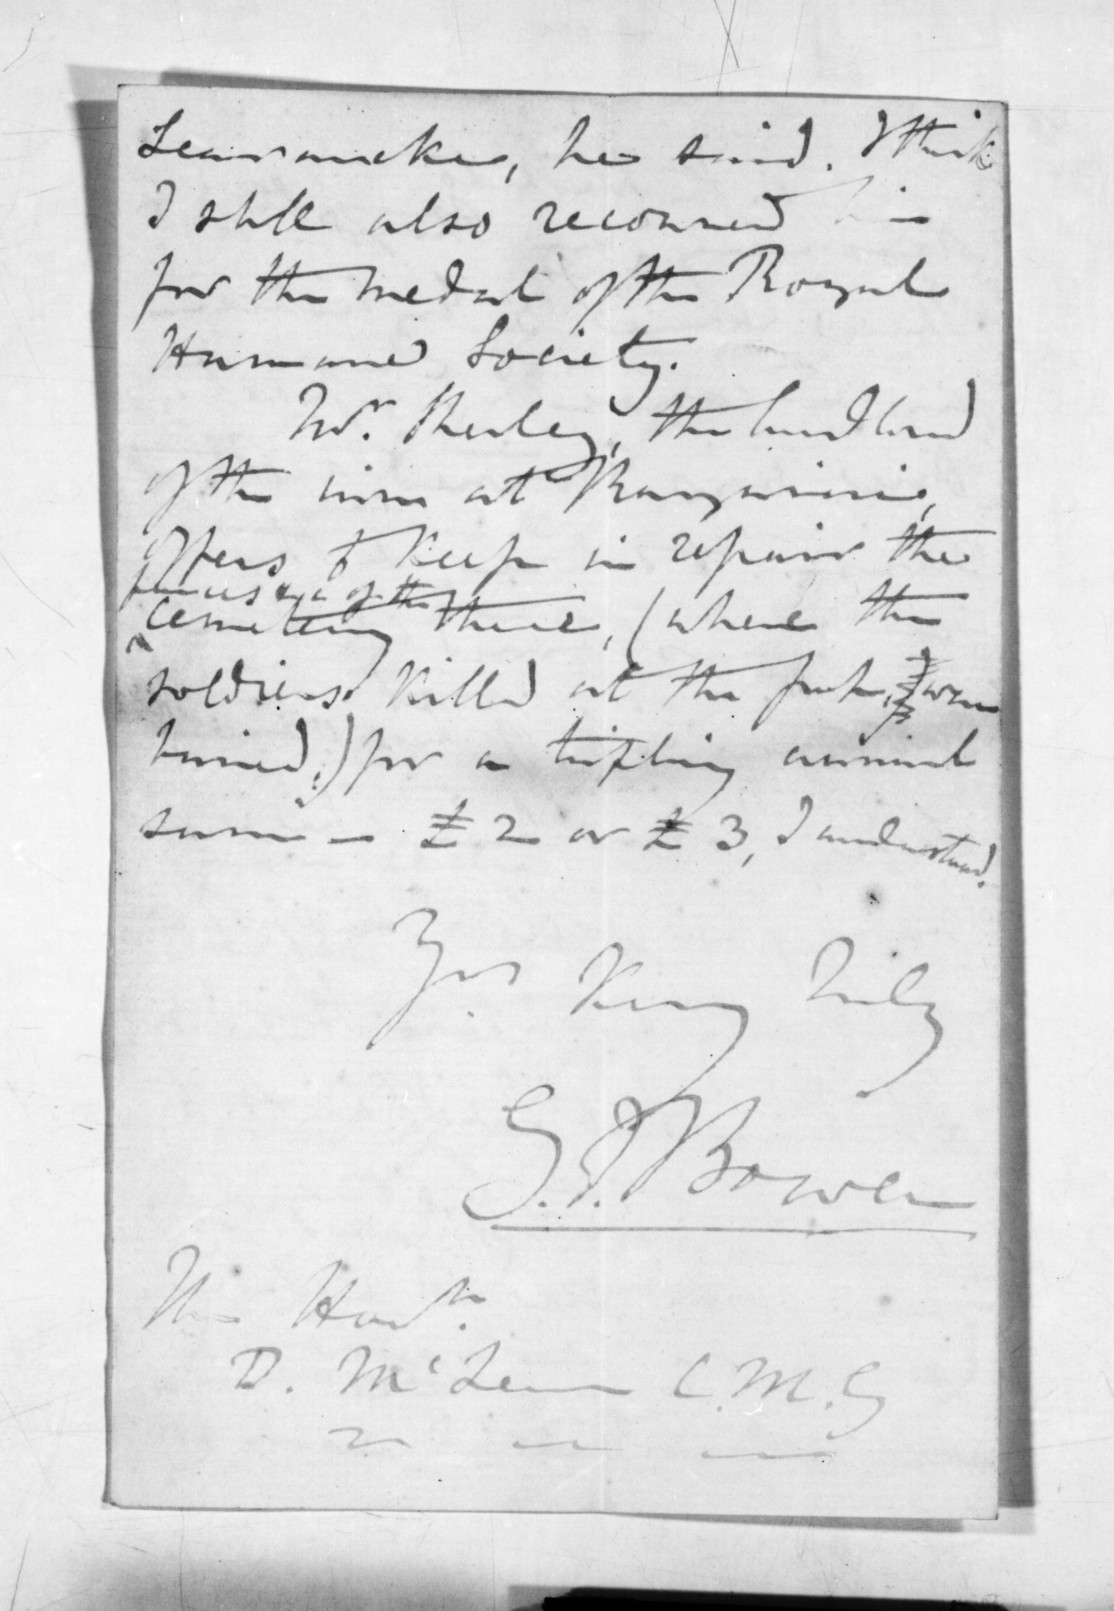 he said. I think
I shall also recommend him
for the medal of the Royal
Humane Society.
Mr. the landlord
of the inn at Rangiriri,
offers to keep in repair the
fences &c of the
cemetery there, (where the
soldiers killed at the were
buried,) for a trifling annual
sum – £2 or £3, I understand.
Yrs. Very Truly
G.F. Bowen
The Honble.
D. McLean C.M.G